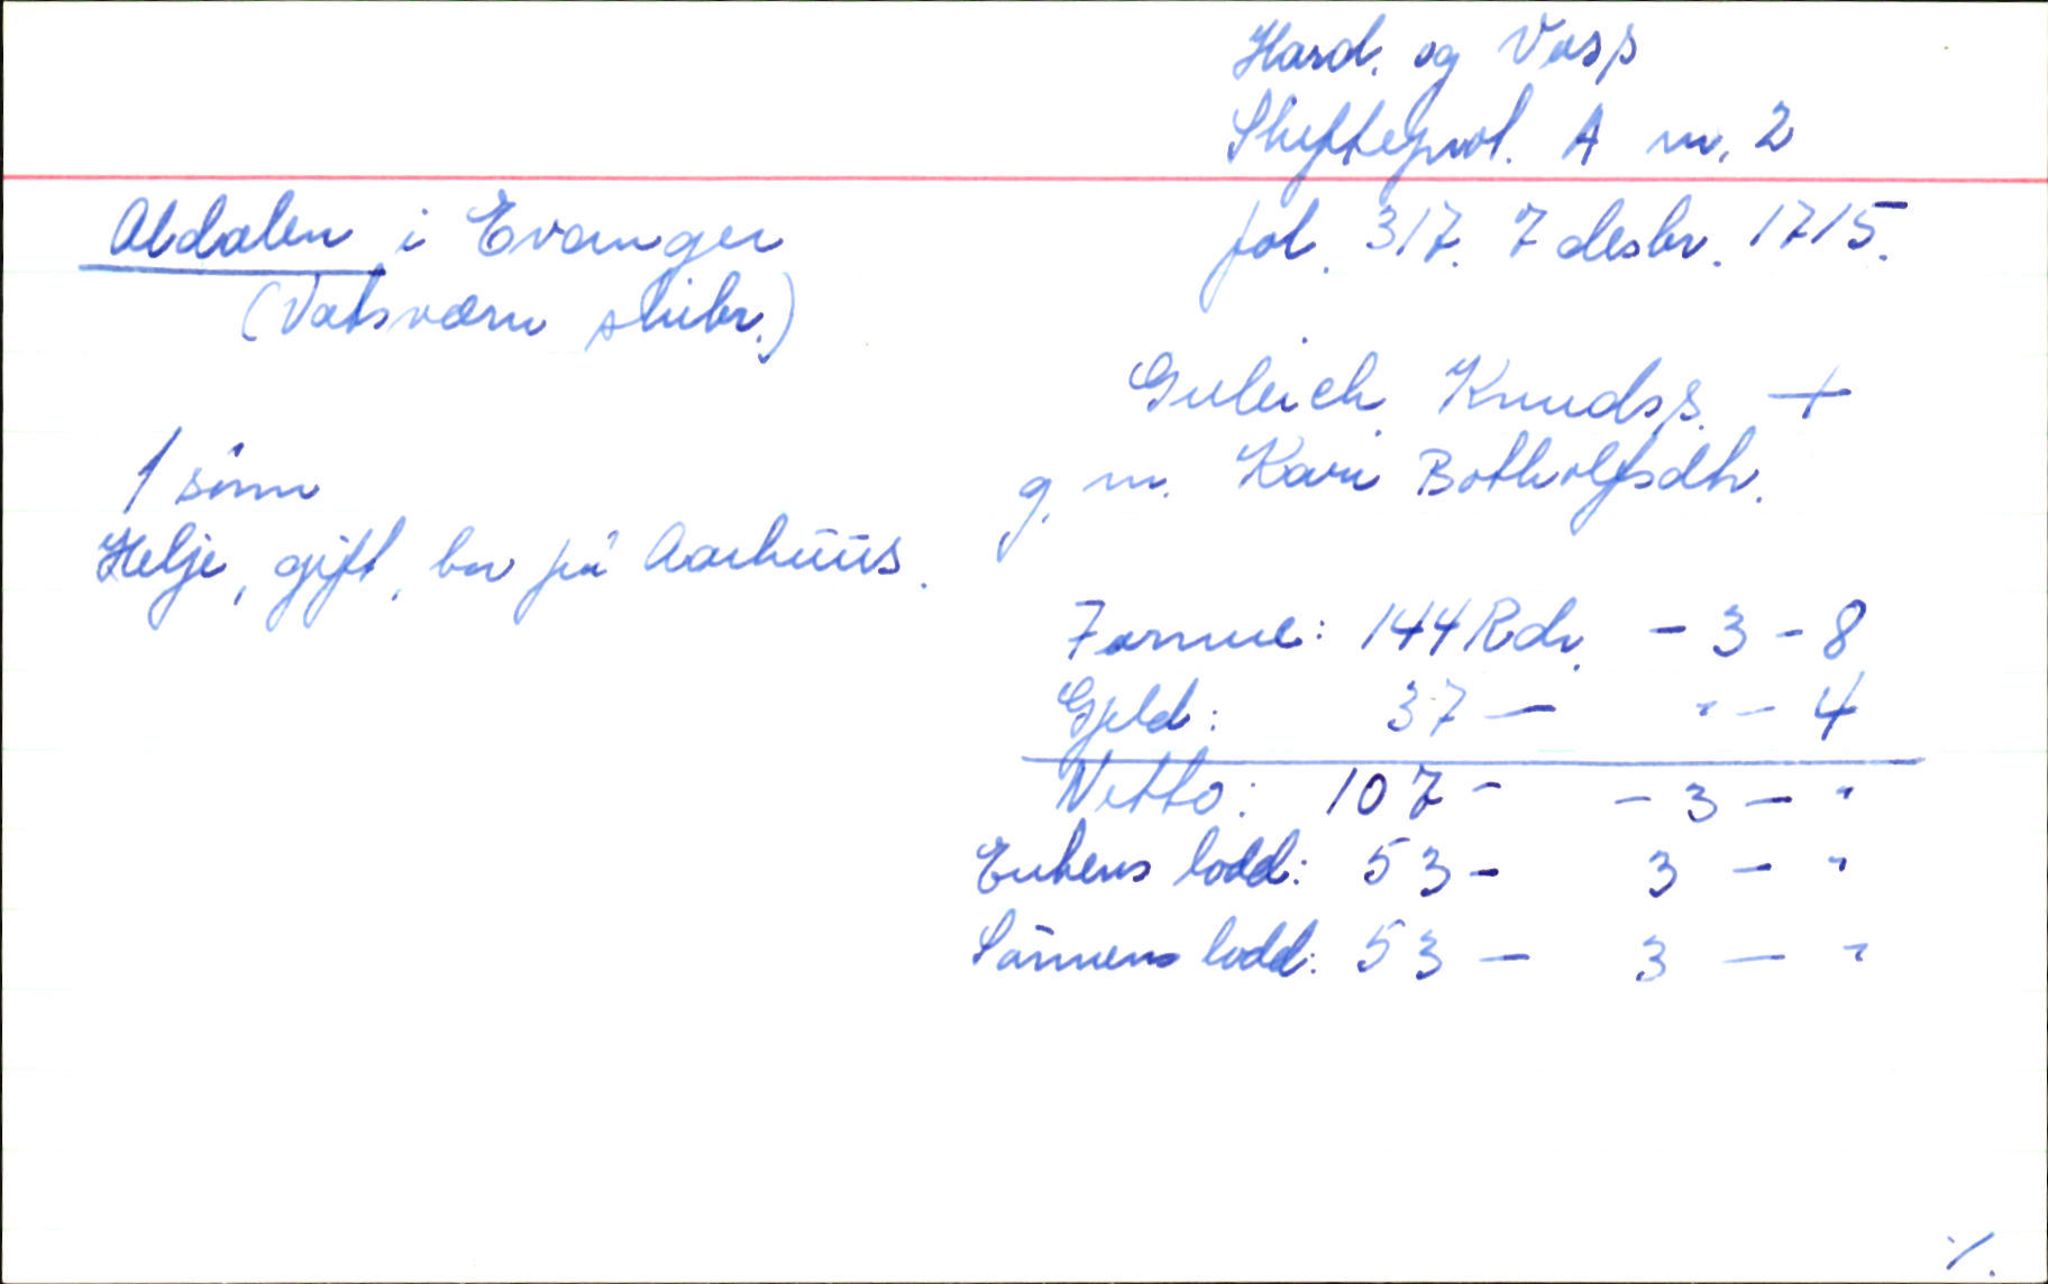 Hard. og Voss
Skifteprot. A nr. 2
fol. 317. 7 desbr. 1715.
Aldalen i Evanger
(Vatsværn skibr.)
Guleich Knudss. +
g. m. Kari Botholfsdtr.
1 sønn
Helje, gift, bor på Aarhuus.
Formue: 144 Rdr. - 3 - 8
Gjeld: 37 — " - 4
Netto: 107 - - 3 - "
Enkens lodd: 53 - 3 - "
Sønnens lodd: 53 - 3 - "
./.